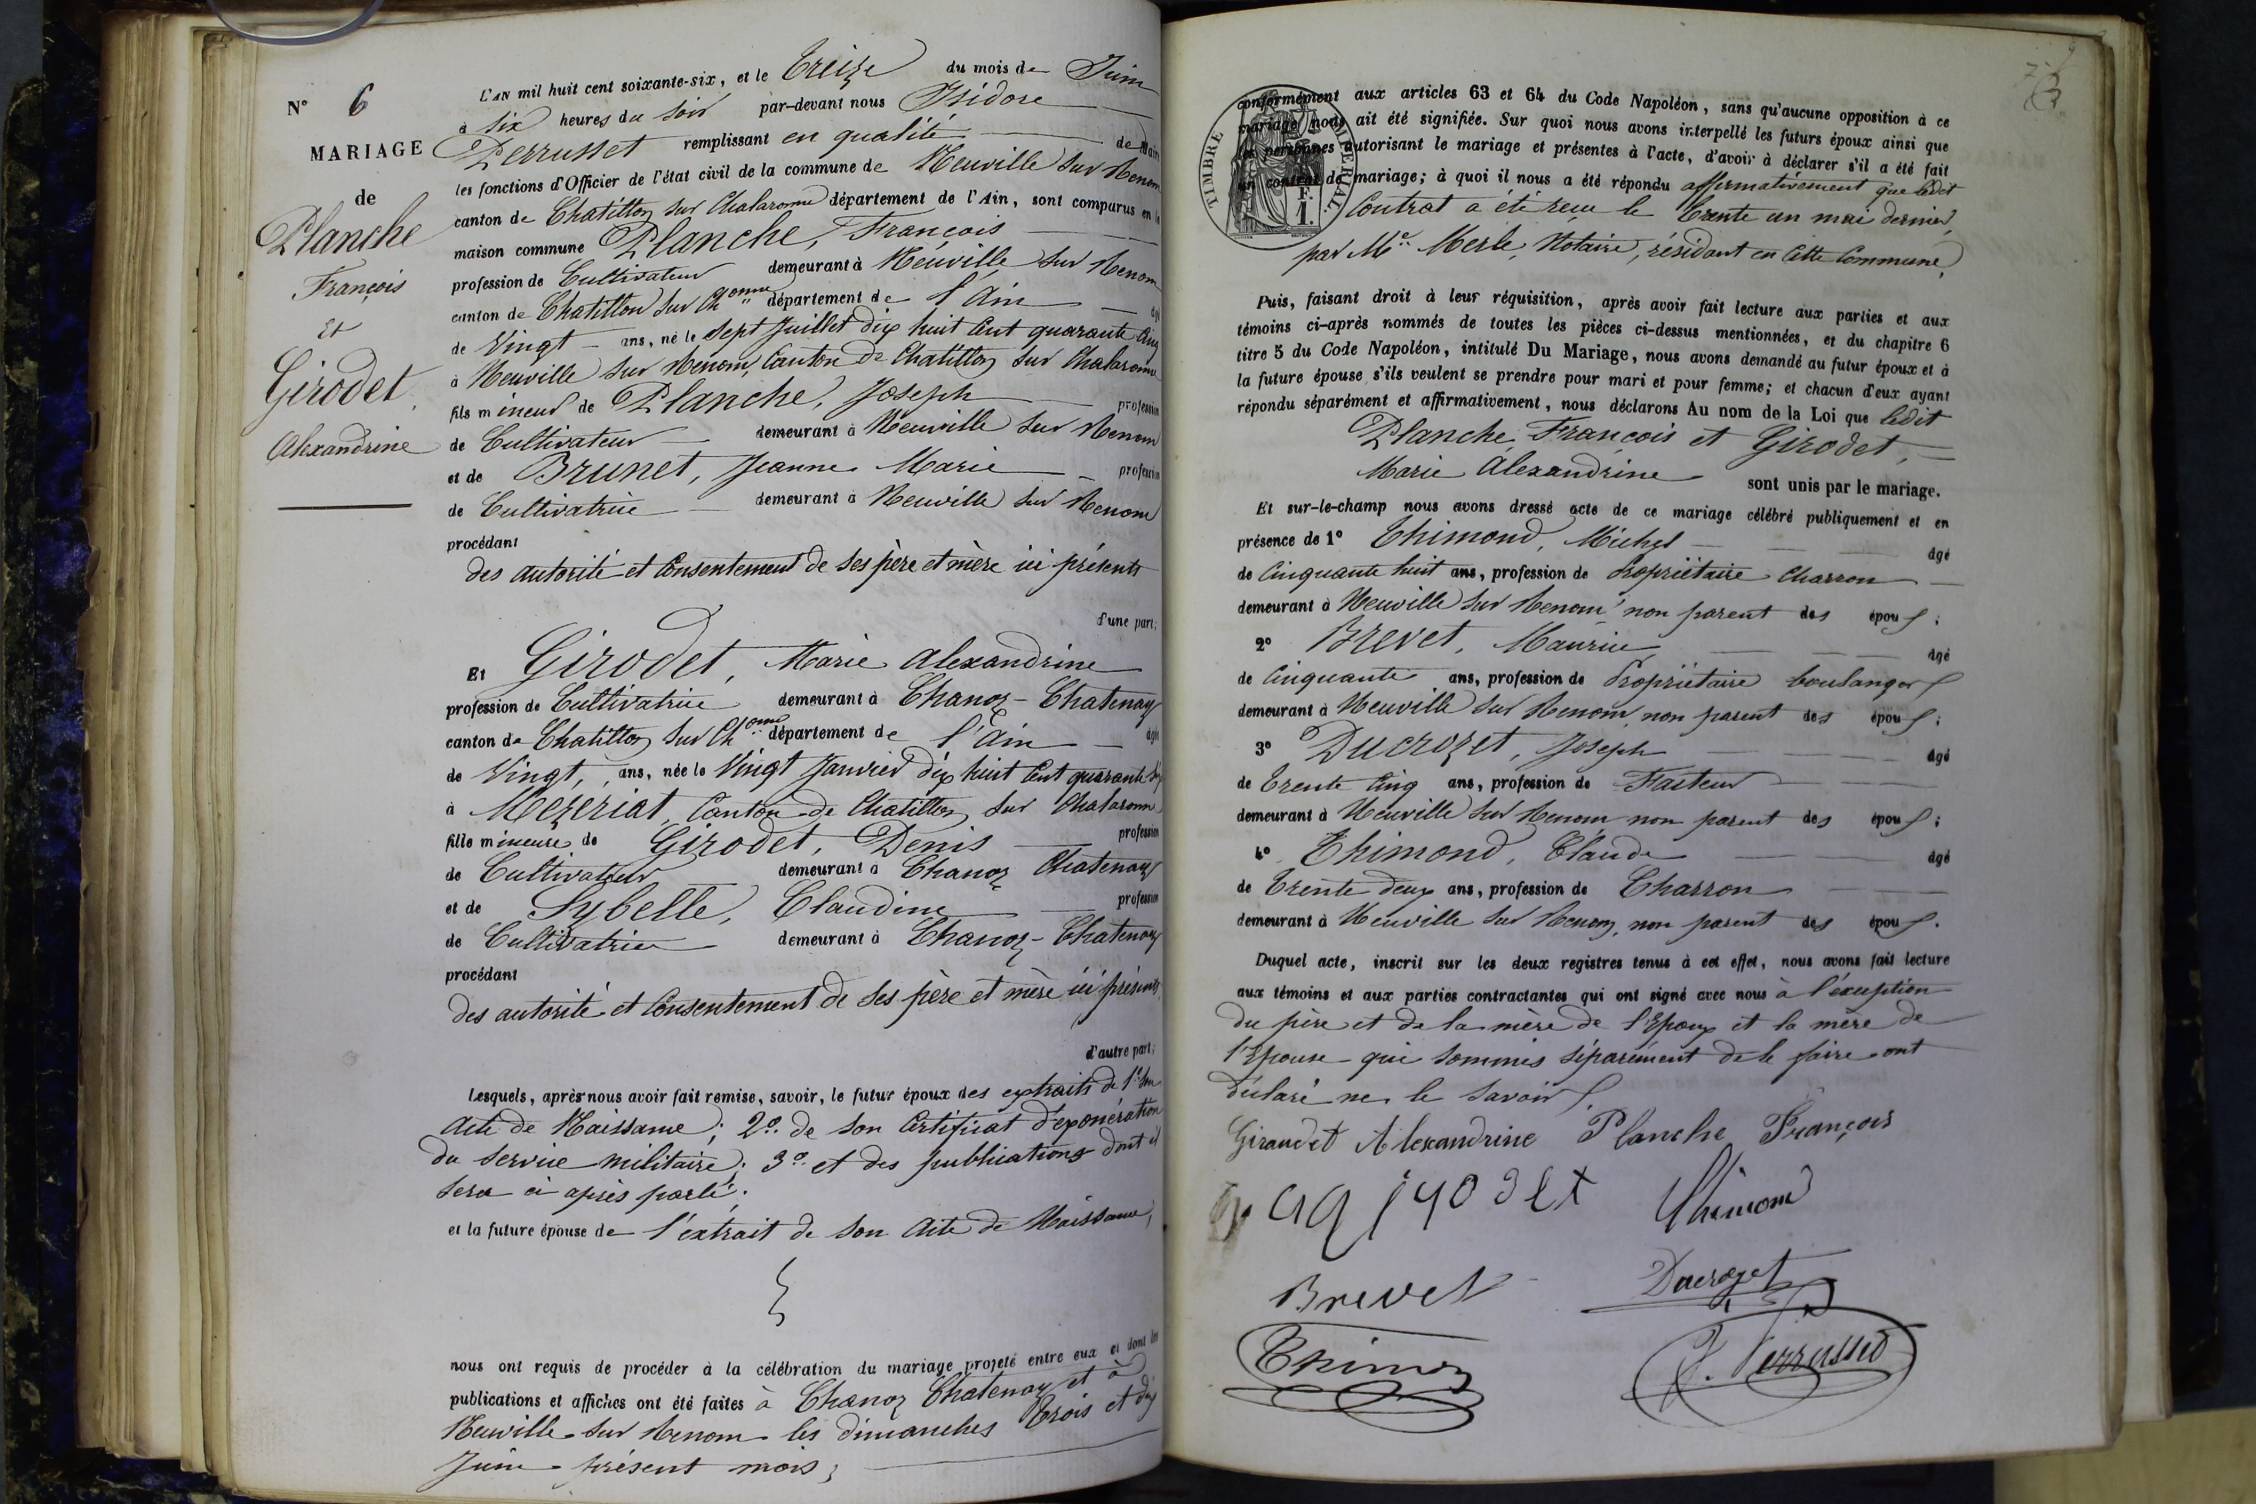 N° 6
MARIAGE
de
Planche
François
Et
Girodet
Alexandrine
L'AN mil huit cent soixante-six, et le treize du mois de Juin
à six heures du soir par-devant nous Isidore
Perrusset remplissant en qualité de Maire
les fonctions d'Officier de l'état civil de la commune de Neuville sur Renom
canton de Chatillon sur Chalaronne département de l'Ain, sont comparus en la
maison commune Planche, François
profession de Cultivateur demeurant à Neuville sur Renom
canton de Chatillon sur Ch.onne département de l'Ain âgé
de Vingt ans, né le sept Juillet dix huit Cent quarante cinq
à Neuville sur Renom, Canton de Chatillon sur Chalaronne
fils mineur de Planche, Joseph profession
de Cultivateur demeurant à Neuville sur Renom
et de Brunet, Jeanne Marie profession
de Cultivatrice demeurant à Neuville sur Renom
procédant
des autorité et Consentement de ses père et mère ici présents
d'une part;
Et Girodet, Marie Alexandrine
profession de Cultivatrice demeurant à Chanoz-Chatenay
canton de Chatillon sur Ch.onne département de l'Ain âgée
de Vingt, ans, née le Vingt Janvier dix huit Cent quarante six
à Mezeriat, Canton de Chatillon sur Chalaronne
fille mineure de Girodet, Denis profession
de Cultivateur demeurant à Chanoz Chatenay
et de Sybelle, Claudine profession
de Cultivatrice demeurant à Chanoz-Chatenay
procédant
des autorité et Consentement de ses père et mère ici présents,
d'autre part;
Lesquels, après nous avoir fait remise, savoir, le futur époux des extraits de 1° son
Acte de Naissance; 2° de son Certificat d'exonération
du service militaire; 3° et des publications dont il
sera ci après parlé;
et la future épouse de l'extrait de son Acte de Naissance,
nous ont requis de procéder à la célébration du mariage projeté entre eux et dont les
publications et affiches ont été faites à Chanoz Chatenay et à
Neuville sur Renom les dimanches Trois et dix
Juin présent mois;
TIMBRE IMPÉRIAL
1 F.
conformément aux articles 63 et 64 du Code Napoléon, sans qu'aucune opposition à ce
mariage nous ait été signifiée. Sur quoi nous avons interpellé les futurs époux ainsi que
les personnes autorisant le mariage et présentes à l'acte, d'avoir à déclarer s'il a été fait
un contrat de mariage; à quoi il nous a été répondu affirmativement que ledit
Contrat a été reçu le trente un mai dernier,
par Me Merle, Notaire, résidant en Cette Commune,
Puis, faisant droit à leur réquisition, après avoir fait lecture aux parties et aux
témoins ci-après nommés de toutes les pièces ci-dessus mentionnées, et du chapitre 6
titre 5 du Code Napoléon, intitulé Du Mariage, nous avons demandé au futur époux et à
la future épouse s'ils veulent se prendre pour mari et pour femme; et chacun d'eux ayant
répondu séparément et affirmativement, nous déclarons Au nom de la Loi que ledit
Planche François et Girodet,
Marie Alexandrine sont unis par le mariage.
Et sur-le-champ nous avons dressé acte de ce mariage célébré publiquement et en
présence de 1° Thimond, Michel âgé
de Cinquante huit ans, profession de Propriétaire Charron
demeurant à Neuville sur Renom non parent des époux;
2° Brevet, Maurice âgé
de Cinquante ans, profession de Propriétaire boulanger
demeurant à Neuville sur Renom non parent des époux;
3° Ducrozet, Joseph âgé
de Trente cinq ans, profession de Facteur
demeurant à Neuville sur Renom non parent des époux;
4° Thimond, Claude âgé
de Trente deux ans, profession de Charron
demeurant à Neuville sur Renom, non parent des époux.
Duquel acte, inscrit sur les deux registres tenus à cet effet, nous avons fait lecture
aux témoins et aux parties contractantes qui ont signé avec nous à l'exception
du père et de la mère de l'Epoux et la mère de
l'Epouse qui sommés séparément de le faire ont
déclaré ne le savoir
Giraudet Alexandrine Planche François
Thimond
Brevet Ducrozet
Thimon I. Perrusset